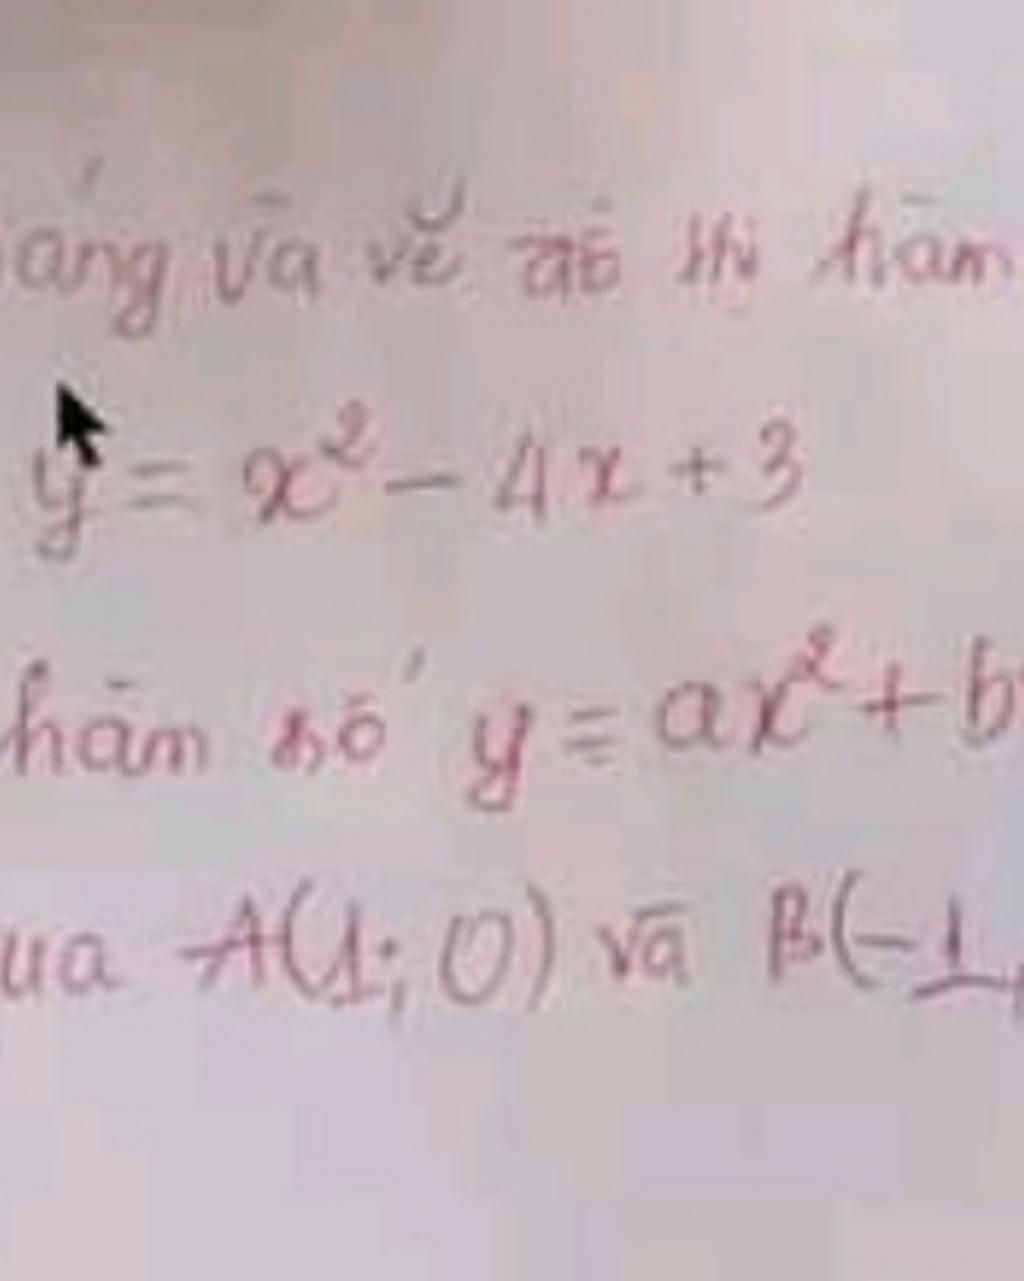 ảng và vẽ đồ thị hàm
y = x² - 4x + 3
hàm số y = ax² + b
ua A(1; 0) và B(-1